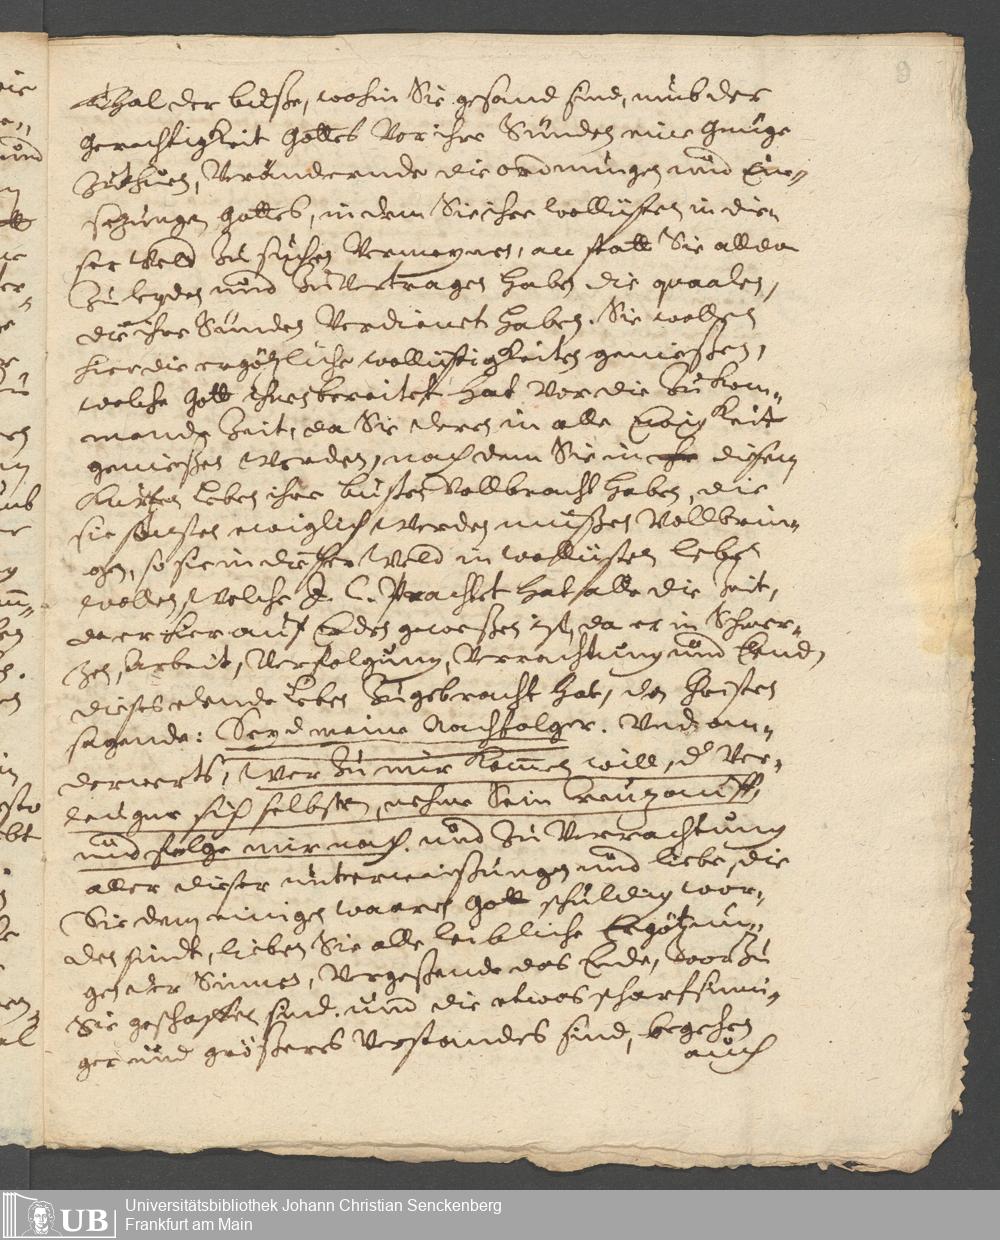 9
Thal der buße, wohin Sie gesand sind, umb der
Gerechtigkeit Gottes Vor ihre Sünden eine Gnüge
zuthuen, Verändernde die ordnungen und Ein-
sezungen Gottes, in dem Sie ihre wollüsten in die-
ser Weld zu suchen Vermeynen, an statt Sie allda
zu leyden und zu Vertragen haben die quaalen,
die ihre Sünden Verdienet haben. Sie wollen
hier die ergözliche wollüstigkeiten genießen,
welche Gott ihnen bereitet hat Vor die zukom-
mende Zeit, da Sie deren in alle Ewigkeit
genießen werden, nach dem Sie in diesem
kurtzen Leben ihre bußen Vollbracht haben, die
sie sonsten ewiglich werden müßen Vollbrin-
gen, so sie in dießer Weld in wollüsten leben
wollen, welche J. C. Verachtet hat alle die Zeit,
da er hier auf Erden geweßen ist, da er in Schmer-
zen, Arbeit, Verfolgung, Verachtung und Elend,
dieses elende Leben zugebracht hat, den Christen
sagende: Seyd meine Nachfolger. Und an-
derwerts, Wer zu mir kommen will, d' Ver-
leugne sich selbsten, nehme Sein Creuz auff,
und folge mir nach. und zu Verachtung
aller dieser unterweißungen und liebe, die
Sie dem einigen waaren Gott schuldig wor-
den sindt, lieben Sie alle leibliche Ergötzun-
gen der Sinnen, Vergeßende das Ende, worzu
Sie geschaffen sind. und die etwas scharfsinni-
ger und größeres Verstandes sind, begehen
auch
Universitätsbibliothek Johann Christian Senckenberg
Frankfurt am Main
UB